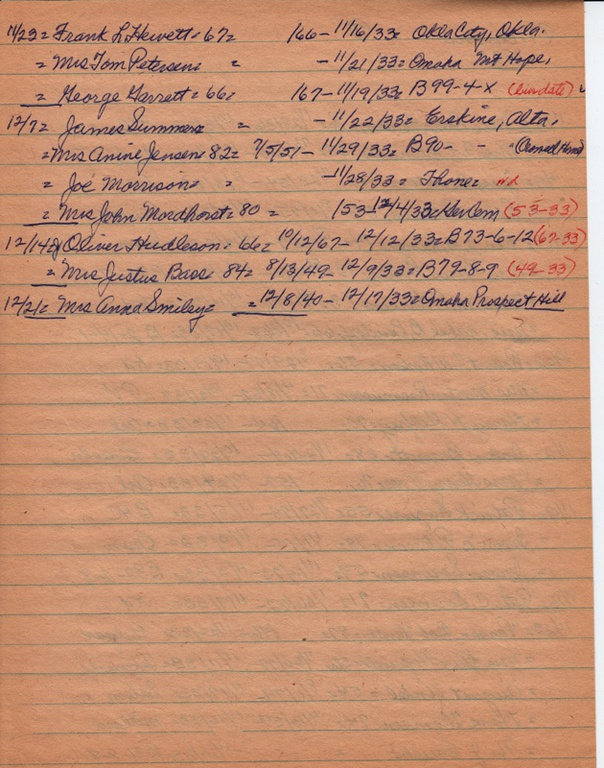 11/23= Frank L Hewett= 67= 166- 11/16/33= Okla City, Okla.
= Mrs Tom Petersen= = - 11/21/33= Omaha Mt Hope,
= George Garrett= 66= 167- 11/19/33= B99-4-X (
12/7= James Summers = - 11/22/33= Erskine, Alta,
=Mrs Anine Jensen= 82= 7/5/51- 11/29/33= B90- -
= Joe Morrison= = -11/28/33= Ft
= Mrs John Mordhorst= 80 = 153-12/4/33= Cem (53-33)
12/14 Oliver Hudleson= 66= 10/12/67- 12/12/33= B73-6-12 (67-33)
= Mrs Justus Bass= 84= 8/13/49- 12/9/33= B79-8-9 (49-33)
12/21= Mrs Anna Smiley= =12/8/40- 12/17/33= Omaha Prospect Hill